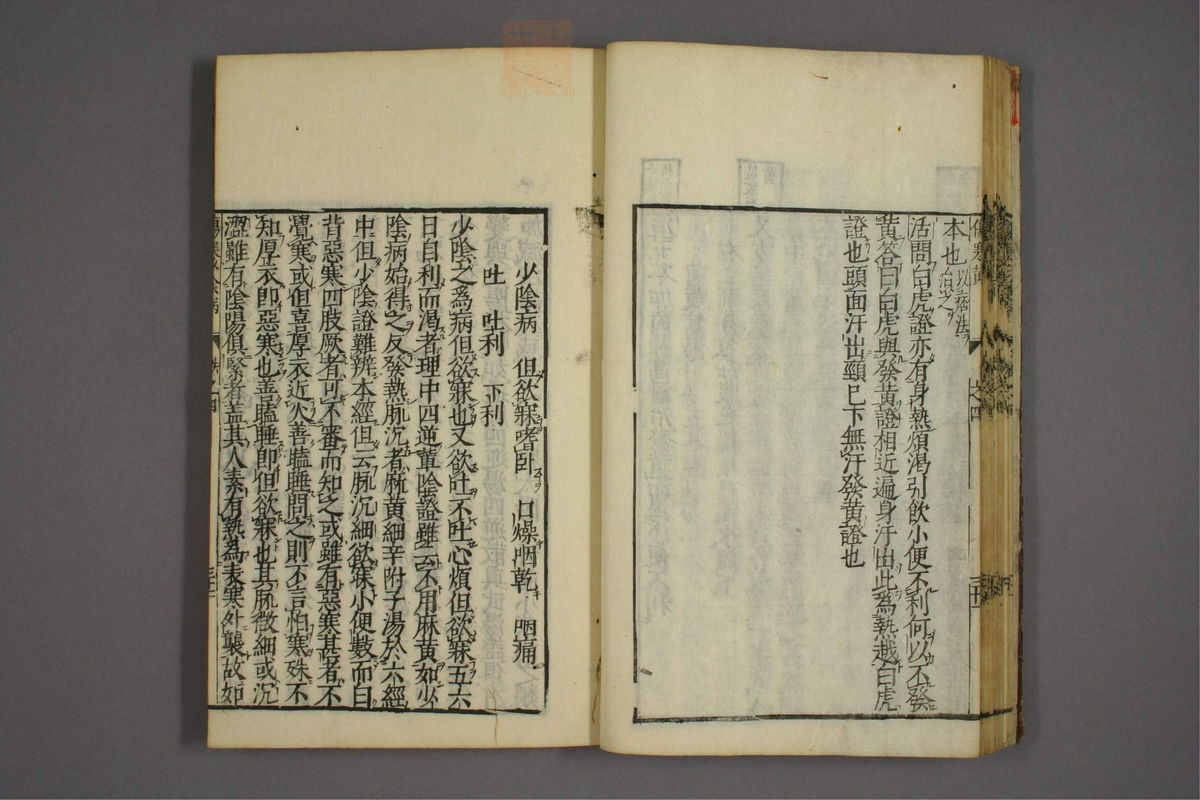 本也以痞法治之
活問白虎證亦有身熱煩渴引飲小便不利何以不發
黃答曰白虎與發黃證相近遍身汗出此為熱越白虎
證也頭面汗出頸已下無汗發黃證也
少陰病 但欲寐嗜卧 口燥咽乾 咽痛
吐 吐利 下利
少陰之為病但欲寐也又欲吐不吐心煩但欲寐五六
日自利而渴者理中四逆輩陰證雖云不用麻黃如少
陰病始得之反發熱脉沉者麻黃細辛附子湯於六經
中但少陰證難辨本經但云脉沉細欲寐小便數而白
背惡寒四肢厥者可不審而知之或雖有惡寒甚者不
覺寒或但喜厚衣近火善瞌睡問之則不言怕寒殊不
知厚衣即惡寒也善瞌睡即但欲寐也其脉微細或沉
澀雖有陰陽俱緊者盖其人素有熱為表寒外襲故如